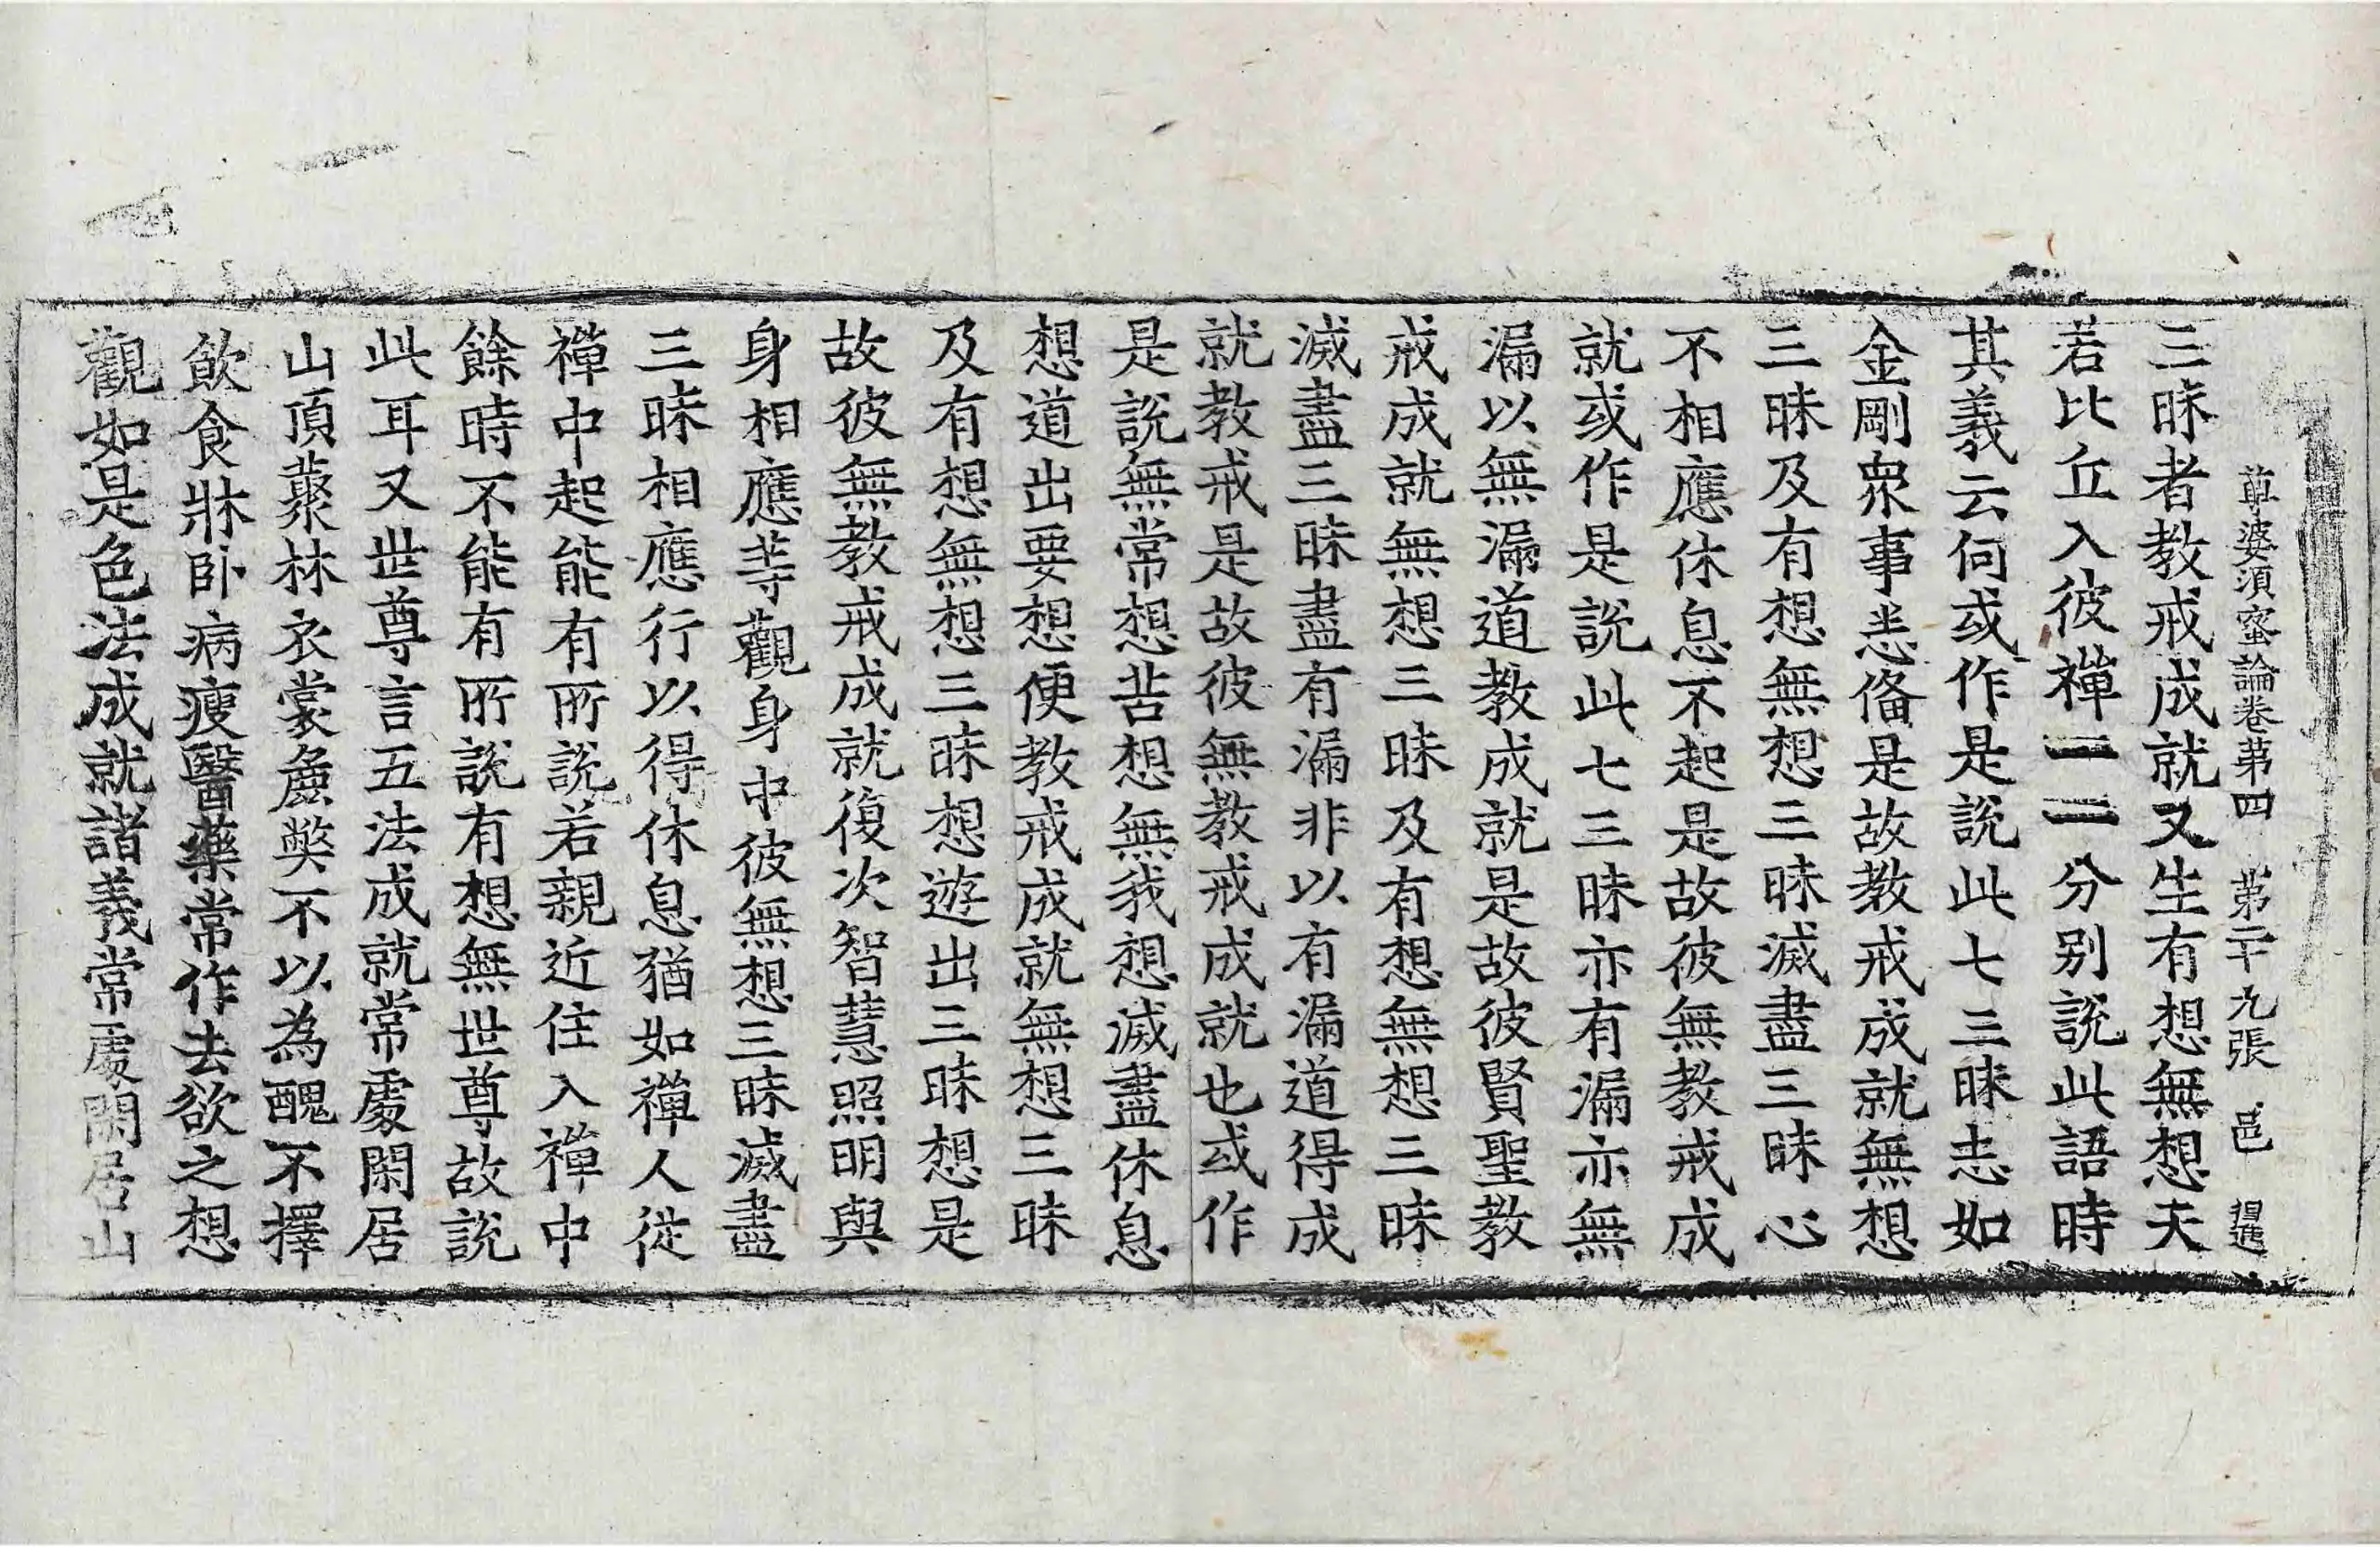 尊婆須蜜論卷第四 第二十九張 邑
三昧者教戒成就又生有想無想天
若比丘入彼禪一一分別說此語時
其義云何或作是說此七三昧志如
金剛衆事悉俻是故教戒成就無想
三昧及有想無想三昧滅盡三昧心
不相應休息不起是故彼無教戒成
就或作是說此七三昧亦有漏亦無
漏以無漏道教成就是故彼賢聖教
戒成就無想三昧及有想無想三昧
滅盡三昧盡有漏非以有漏道得成
就教戒是故彼無教戒成就也或作
是說無常想苦想無我想滅盡休息
想道出要想便教戒成就無想三昧
及有想無想三昧想遊出三昧想是
故彼無教戒成就復次智慧照明與
身相應等觀身中彼無想三昧滅盡
三昧相應行以得休息猶如禪人從
禪中起能有所說若親近住入禪中
餘時不能有所說有想無世尊故說
此耳又世尊言五法成就常處閑居
山頂藂林衣裳麁獘不以為醜不擇
飲食牀卧病瘦醫藥常作去欲之想
觀如是色法成就諸義常處閑居山